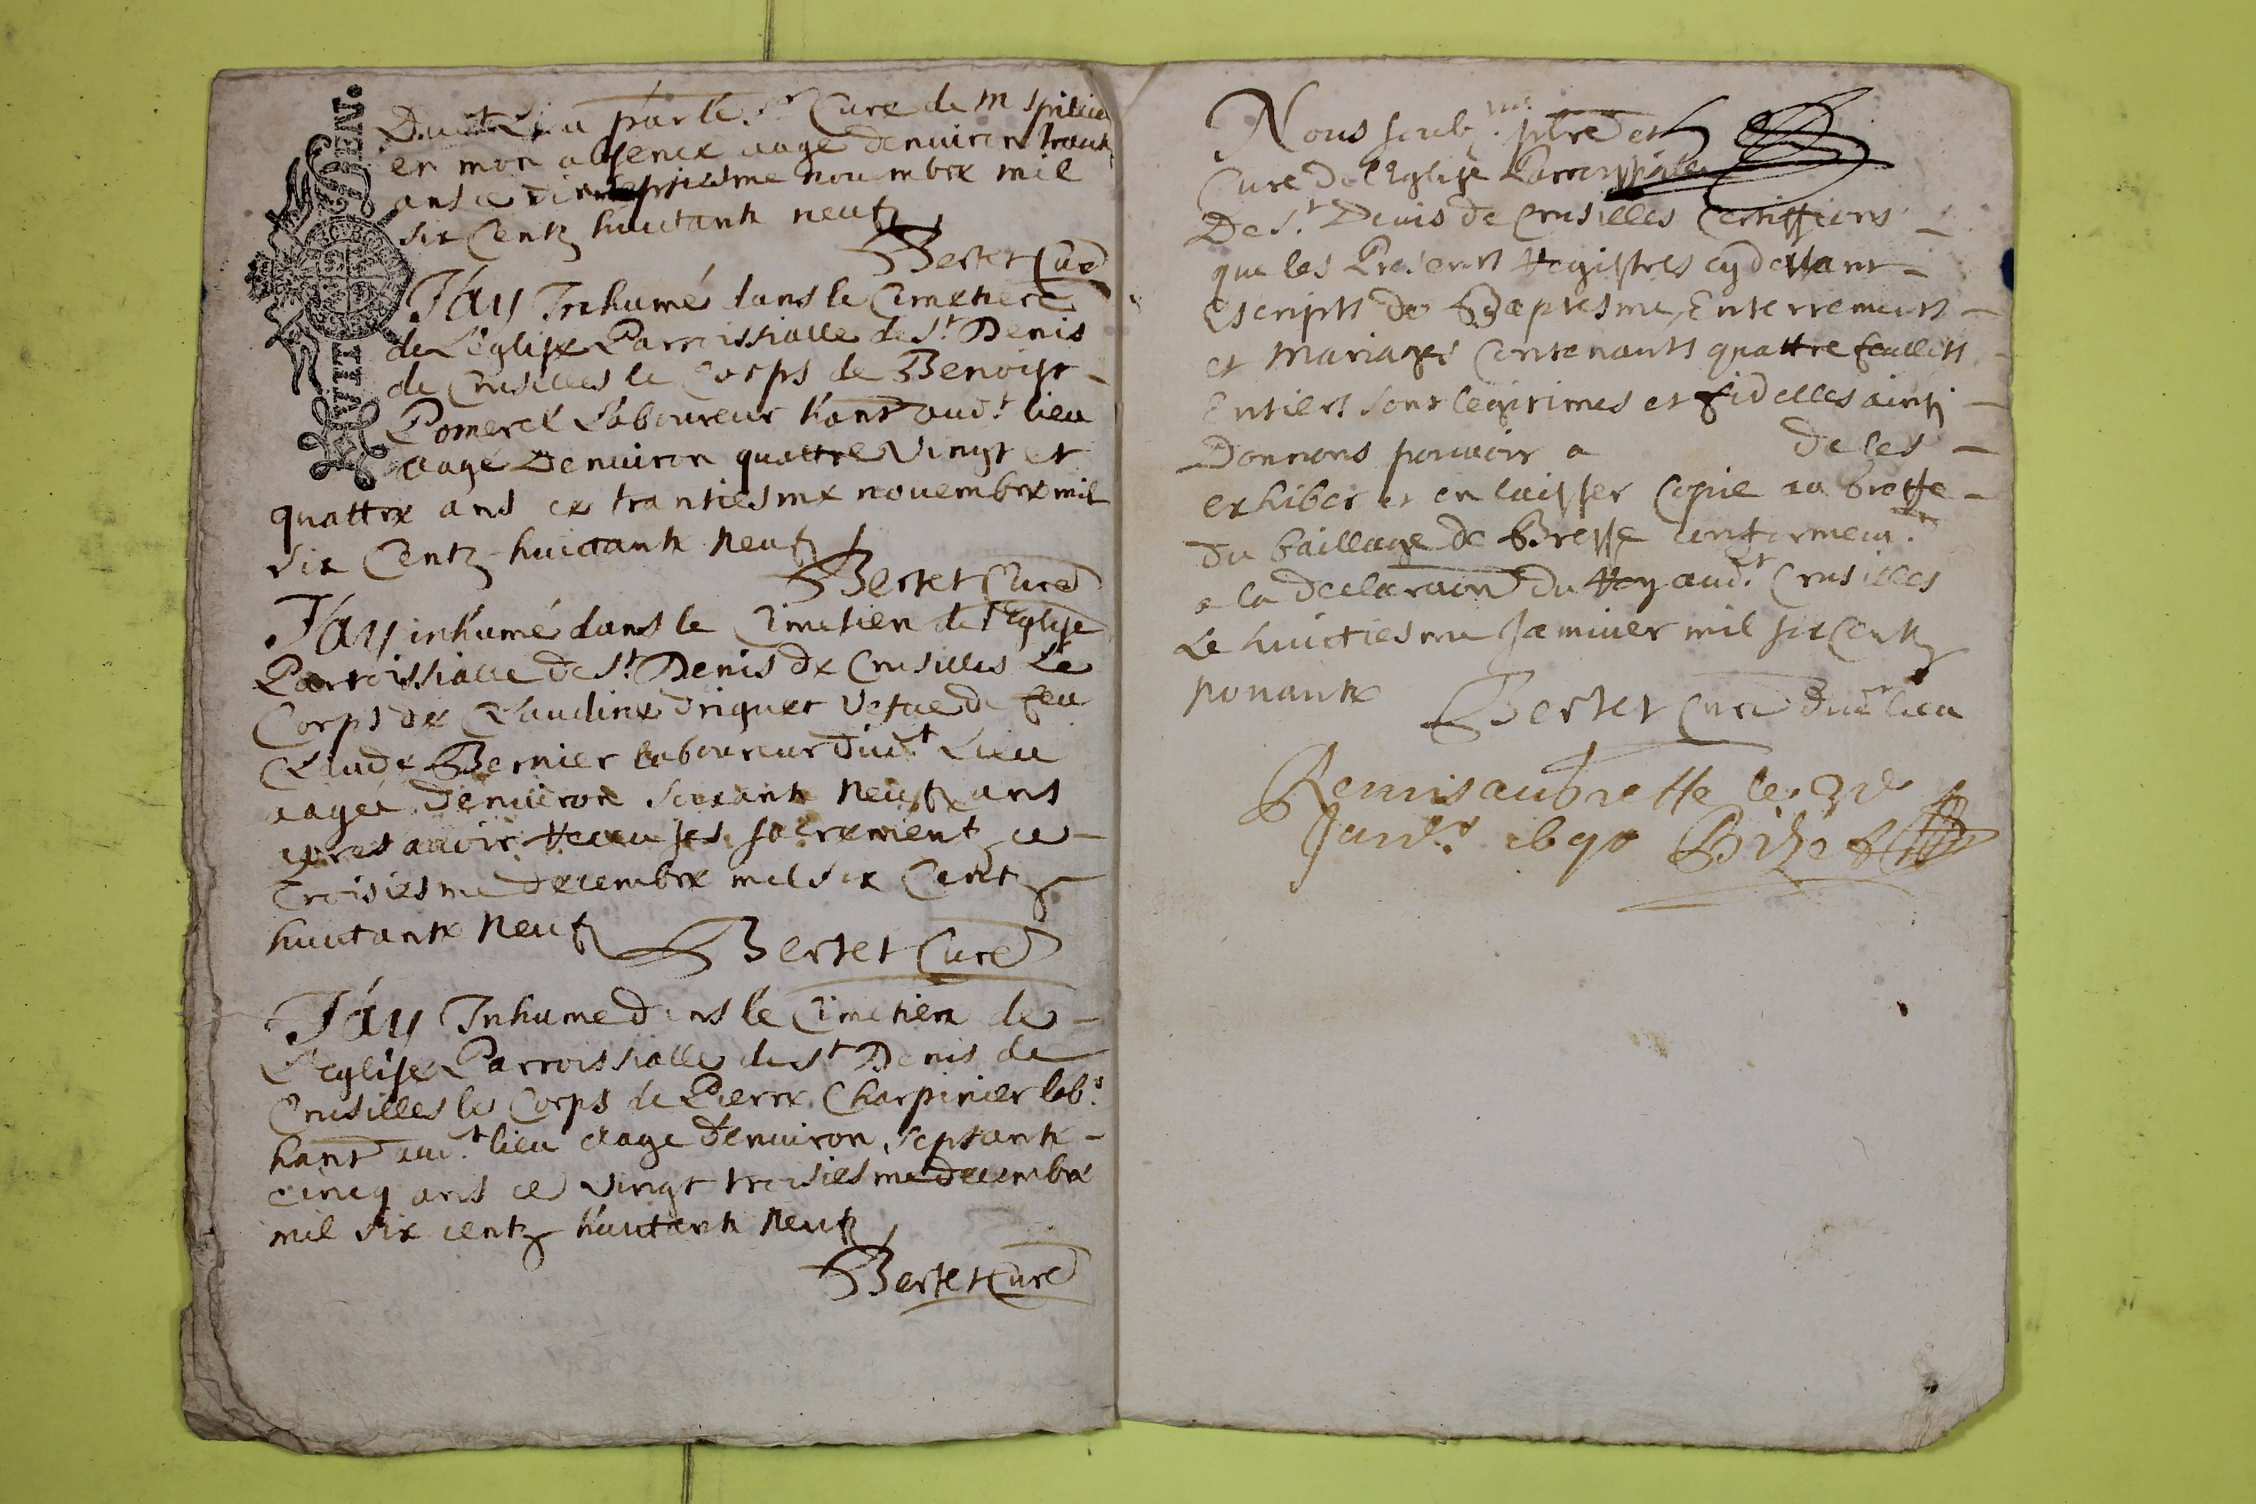 Dud.t Lieu par le s.r Curé de m
en mon absence aagé denuiron trante
ans ce dix septiesme nouembre mil
six Centz huictante neufz
Bertet Curé
J'ay Inhumé dans le Cimetiere
de L'église Parroissialle de S.t Denis
de Crusilles le Corps de Benoist
Pomerel Laboureur ha͞nt aud.t lieu
aagé Denuiron quattre Vingt et
quattre ans ce trantiesme nouembre mil
six Centz huictante neufz
Bertet Curé
J'ay inhumé dans le Cimetiere de l'Eglise
Parroissialle de S.t Denis de Crusilles Le
Corps de Claudine Vefue de feu
Claude Bernier laboureur Dud.t Lieu
aagée denuiron soixante neufz ans
apres auoir Receu ses sacrement ce
Troisiesme decembre mil six Centz
huictante neufz Bertet Curé
J'ay Inhumé dans le Cimetiere de
L'église Parroissialle de S.t Denis de
Crusilles le Corps de Pierre Charpinier lab.r
ha͞nt aud.t lieu aagé denuiron septante
cinq ans ce vingt troisiesme decembre
mil six centz huictante neufz
Bertet Curé
Nous soub.né pbre et
Curé de l'Eglise Parroissialle
De S.t Denis de Crusilles Certiffions
que les Presents Registres cy deuant
Escripts de Baptesme, Enterrements
et Mariages Contenants quattre feullets
Entiers sont legitimes et fidelles ainsi
Donnons pouuoir a de les
exhiber et en laisser Copie au Greffe
du bailliage de Bresse conformem.t
a la declara͞on du Roy aud.t Crusilles
Le huictiesme Januier mil six Centz
nonante Bertet Curé dud.t lieu
Remis au Greffe le
Januier 1690
AVIT DEN.